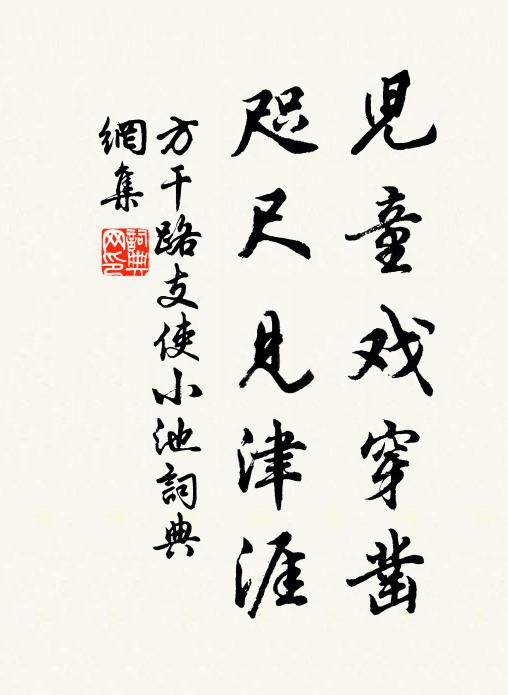 児童戏穿凿
咫尺见津涯
方干路支使小池詞典
網集
詞典
网印